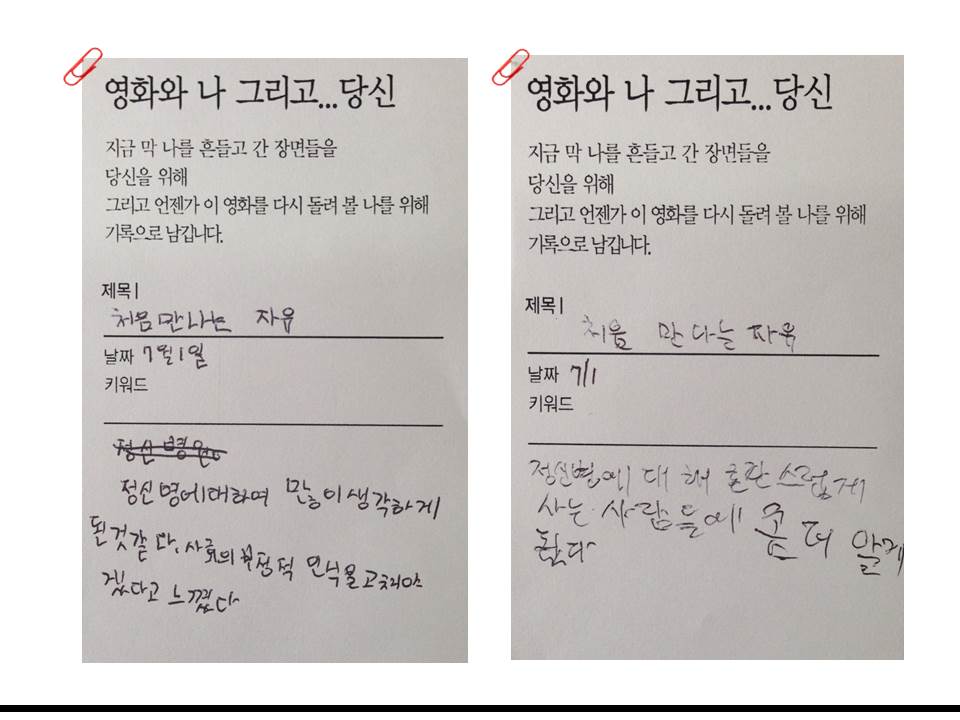 영화와 나 그리고...당신
지금 막 나를 흔들고 간 장면들을
당신을 위해
그리고 언젠가 이 영화를 다시 돌려 볼 나를 위해
기록으로 남깁니다.
제목|
처음 만나는 자유
날짜 7월 1일
키워드
정신병원
정신병에대하여 많이생각하게
된것같다. 사회의 부정적 인식을고쳐야
겠다고 느꼈다
영화와 나 그리고...당신
지금 막 나를 흔들고 간 장면들을
당신을 위해
그리고 언젠가 이 영화를 다시 돌려 볼 나를 위해
기록으로 남깁니다.
제목|
처음 만나는 자유
날짜 7/1
키워드
정신병에 대해
사는 사람들에 좀 더 알게
됐다